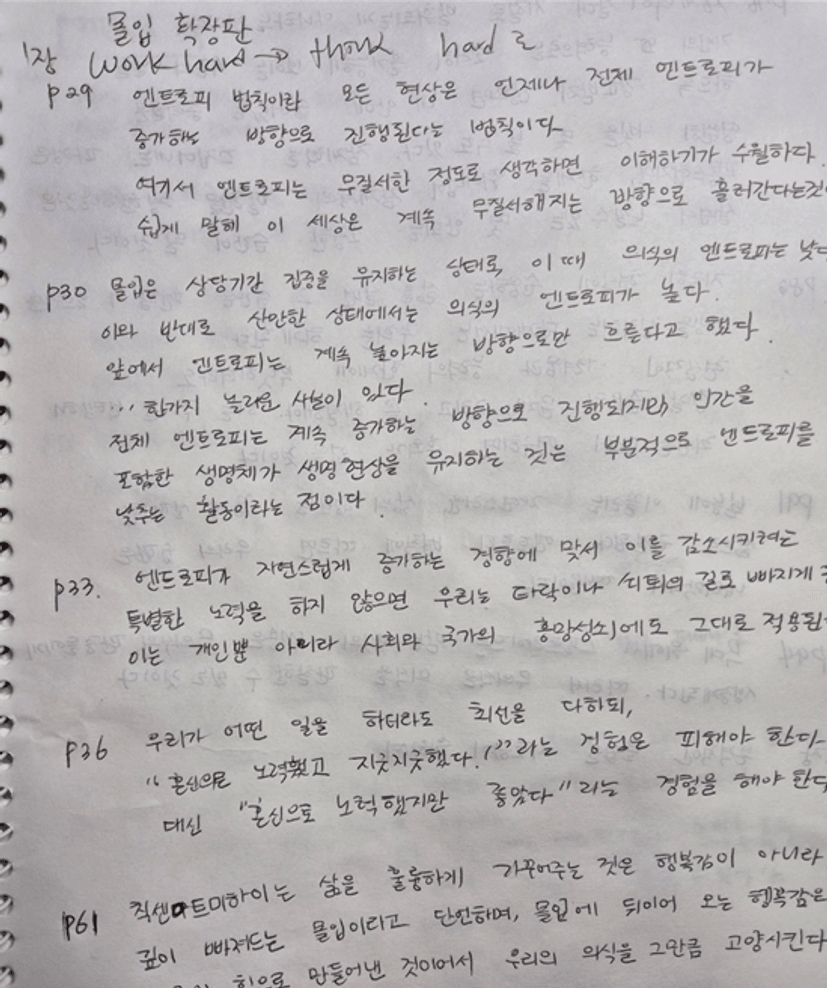 몰입 확장판
1장 work hard → think hard 로
p29 엔트로피 법칙이란 모든 현상은 언제나 전체 엔트로피가
증가하는 방향으로 진행된다는 법칙이다.
여기서 엔트로피는 무질서한 정도로 생각하면 이해하기가 수월하다.
쉽게 말해 이 세상은 계속 무질서해지는 방향으로 흘러간다는것
p30 몰입은 상당기간 집중을 유지하는 상태로, 이 때 의식의 엔트로피는 낮다
이와 반대로 산만한 상태에서는 의식의 엔트로피가 높다.
앞에서 엔트로피는 계속 높아지는 방향으로만 흐른다고 했다.
... 한가지 놀라운 사실이 있다.
전체 엔트로피는 계속 증가하는 방향으로 진행되지만, 인간을
포함한 생명체가 생명현상을 유지하는 것은 부분적으로 엔트로피를
낮추는 활동이라는 점이다.
p33. 엔트로피가 자연스럽게 증가하는 경향에 맞서 이를 감소시키려는
특별한 노력을 하지 않으면 우리는 타락이나 쇠퇴의 길로 빠지게
이는 개인뿐 아니라 사회와 국가의 흥망성쇠에도 그대로 적용된
p36 우리가 어떤 일을 하더라도 최선을 다하되,
"혼신으로 노력했고 지긋지긋했다."라는 경험은 피해야 한다
대신 "혼신으로 노력했지만 좋았다"라는 경험을 해야 한다
P61 칙센트미하이는 삶을 훌륭하게 가꾸어주는 것은 행복감이 아니라
깊이 빠져드는 몰입이라고 단언하며, 몰입에 뒤이어 오는 행복감은
힘으로 만들어낸 것이어서 우리의 의식을 그만큼 고양시킨다